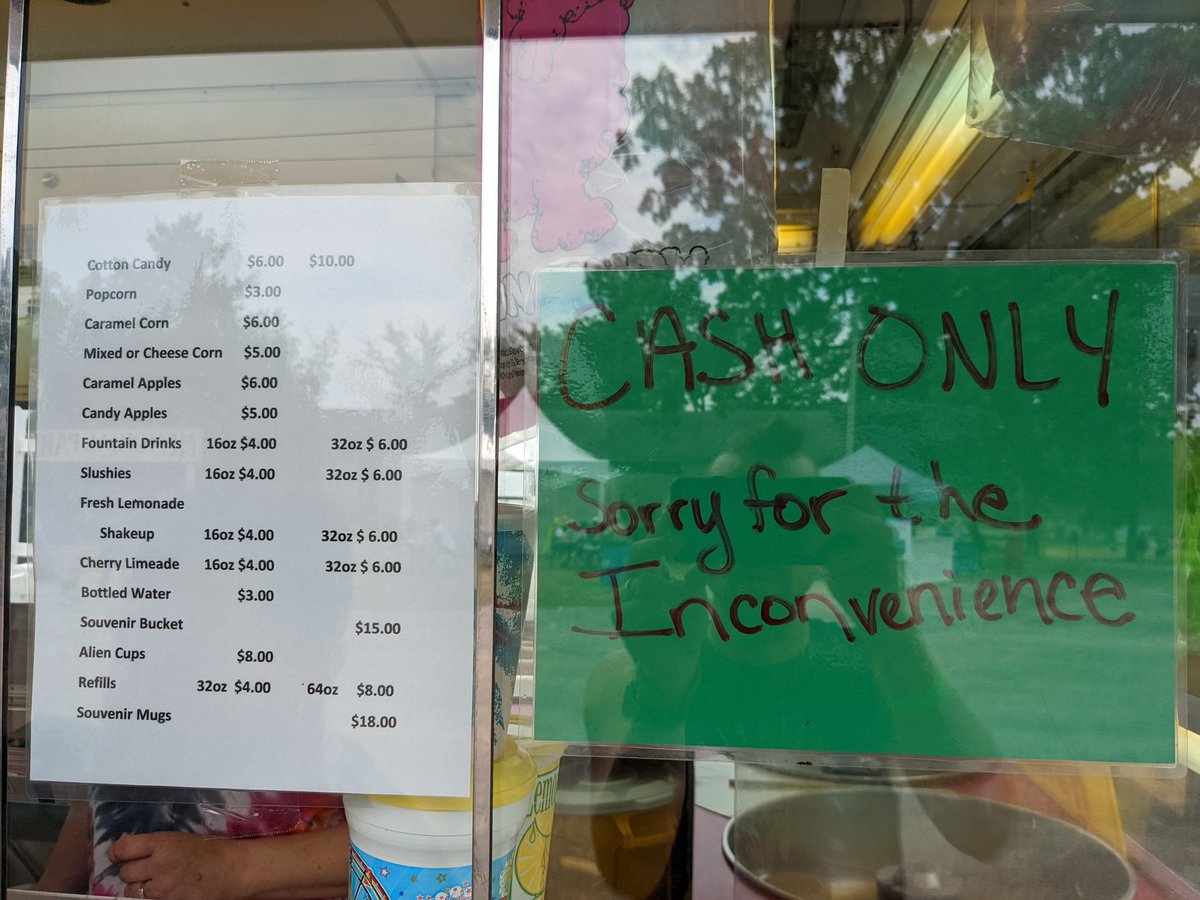 Cotton Candy $6.00 $10.00
Popcorn $3.00
Caramel Corn $6.00
Mixed or Cheese Corn $5.00
Caramel Apples $6.00
Candy Apples $5.00
Fountain Drinks 16oz $4.00 32oz $ 6.00
Slushies 16oz $4.00 32oz $ 6.00
Fresh Lemonade
Shakeup 16oz $4.00 32oz $ 6.00
Cherry Limeade 16oz $4.00 32oz $ 6.00
Bottled Water $3.00
Souvenir Bucket $15.00
Alien Cups $8.00
Refills 32oz $4.00 64oz $8.00
Souvenir Mugs $18.00
CASH ONLY
Sorry for the
Inconvenience